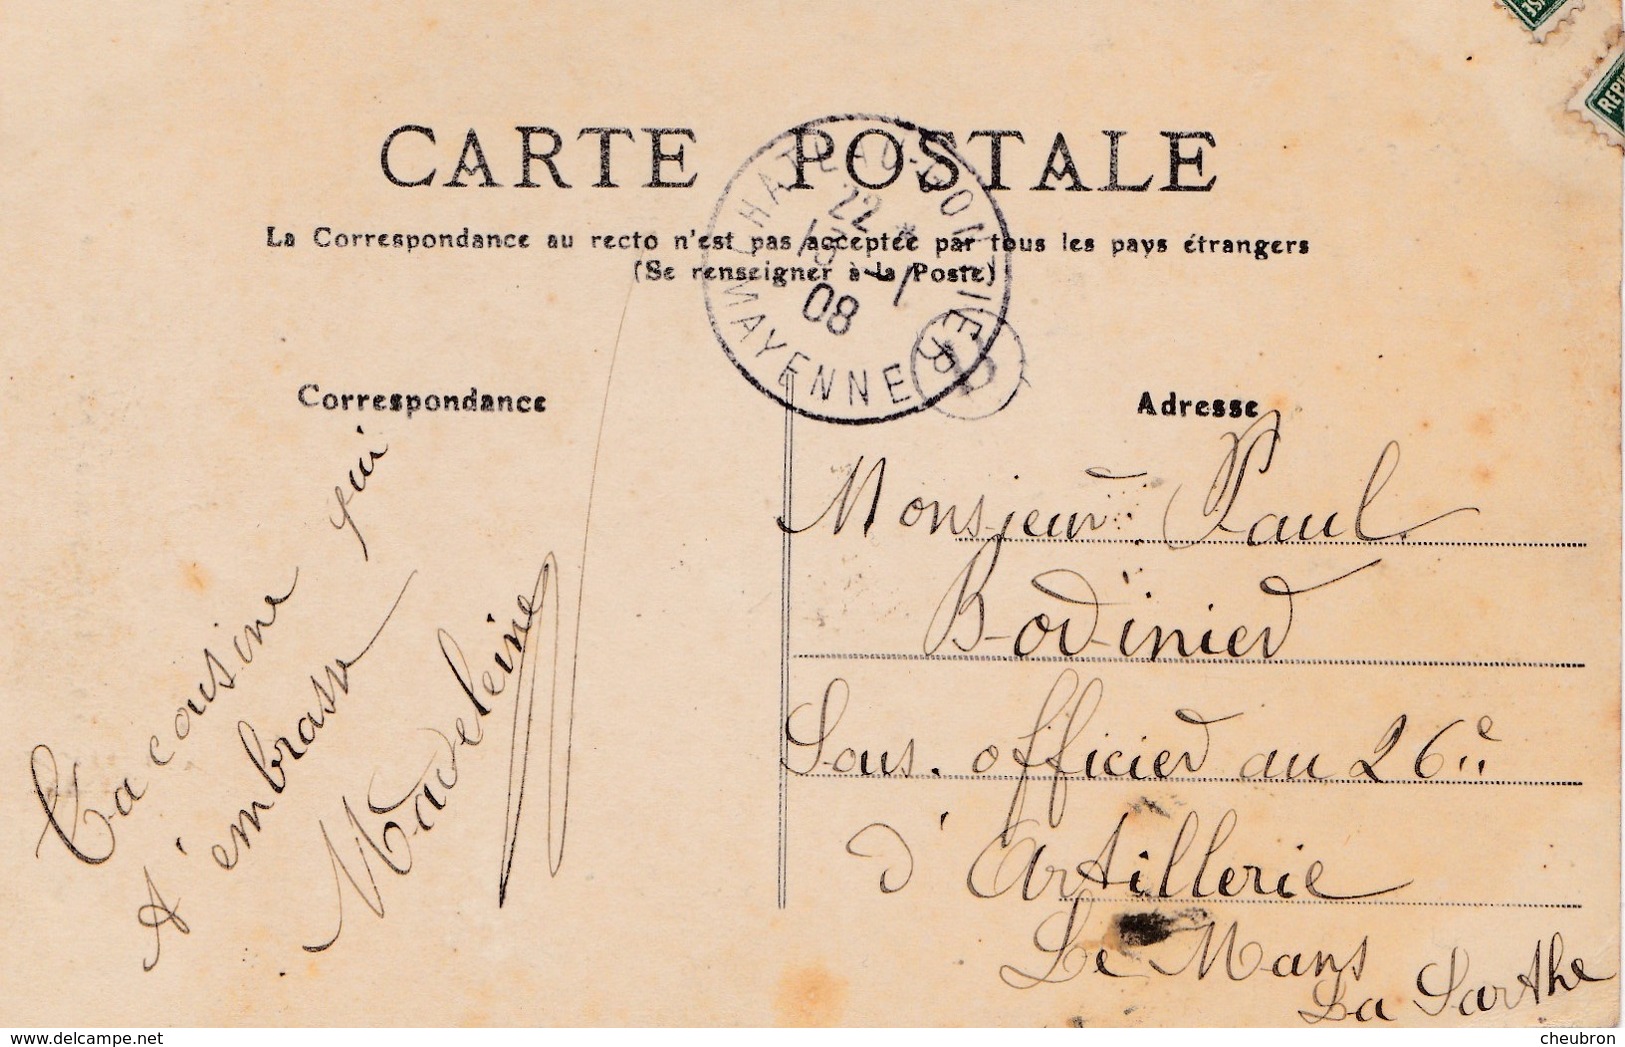 CARTE POSTALE
La Correspondance au recto n'est pas acceptée par tous les pays étrangers
(Se renseigner à la Poste)
CHATEAU-GONTIER
22
08
MAYENNE
B
REPU
Correspondance
Ta cousine qui
t'embrasse
Madeleine
Adresse
Monsieur Paul
Bodinier
Sous. officier au 26e
d'Artillerie
Le Mans
La Sarthe
www.delcampe.net
cheubron